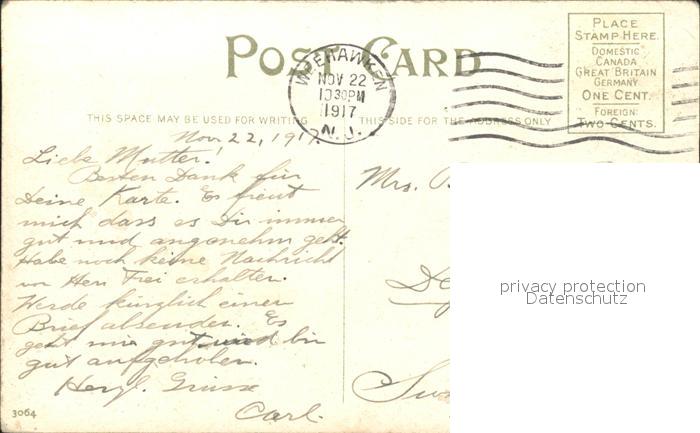 POST CARD
PLACE
STAMP HERE.
DOMESTIC
CANADA
GREAT BRITAIN
GERMANY
ONE CENT.
FOREIGN:
TWO CENTS.
WEEHAWKEN
NOV 22
10 30 PM
1917
N. J.
THIS SPACE MAY BE USED FOR WRITING
THIS SIDE FOR THE ADDRESS ONLY
Nov 22, 1917.
Liebe Mutter!
Besten Dank für
Deine Karte. Es freut
mich dass es Dir immer
gut und angenehm geht.
Habe noch keine Nachricht
von Herr Frei erhalten.
Werde kürzlich einen
Brief absenden. Es
geht mir gut und bin
gut aufgehoben.
Herzl. Grüsse
Carl.
Mrs.
3064
privacy protection
Datenschutz